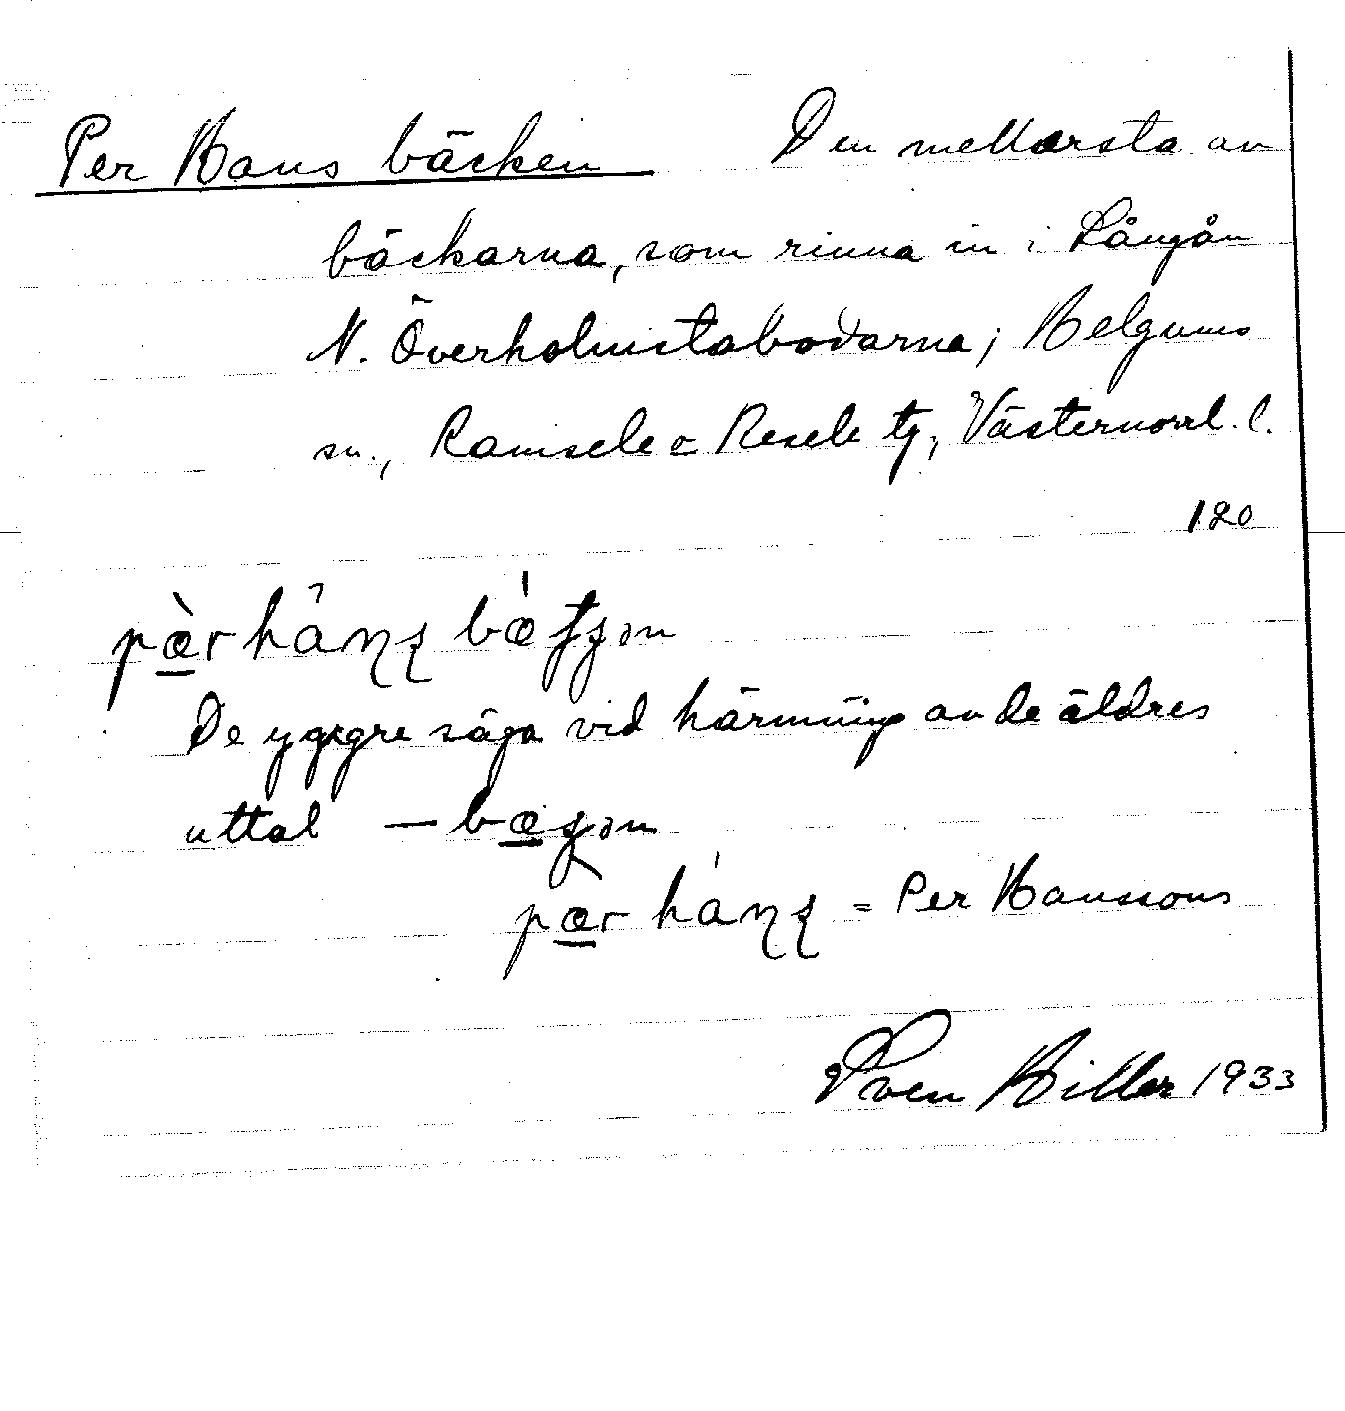 Per Hans bäcken Den mellersta av
bäckarna, som rinna in i Långån
N. Överholmstabodarna; Helgums
sn., Ramsele o Resele tg, Västernorrl. l.
120
pæ̀r hâɳʂ bǽʈʂən
De yngre säga vid härmning av de äldres
uttal — bæʂən
pær háɳʂ = Per Hanssons
Sven Hiller 1933